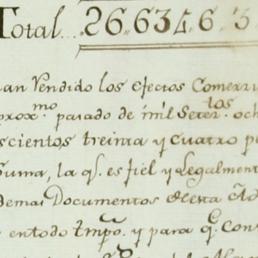 Total... 26.634.6.3
an Vendido los efectos Comerci
prox.mo pasado de mil Setec.tos och
scientos treinta y cuatro p
suma, la q.l es fiel y Legalment
demas Documentos de esta Ad
en todo tmpo. y para q.e Con